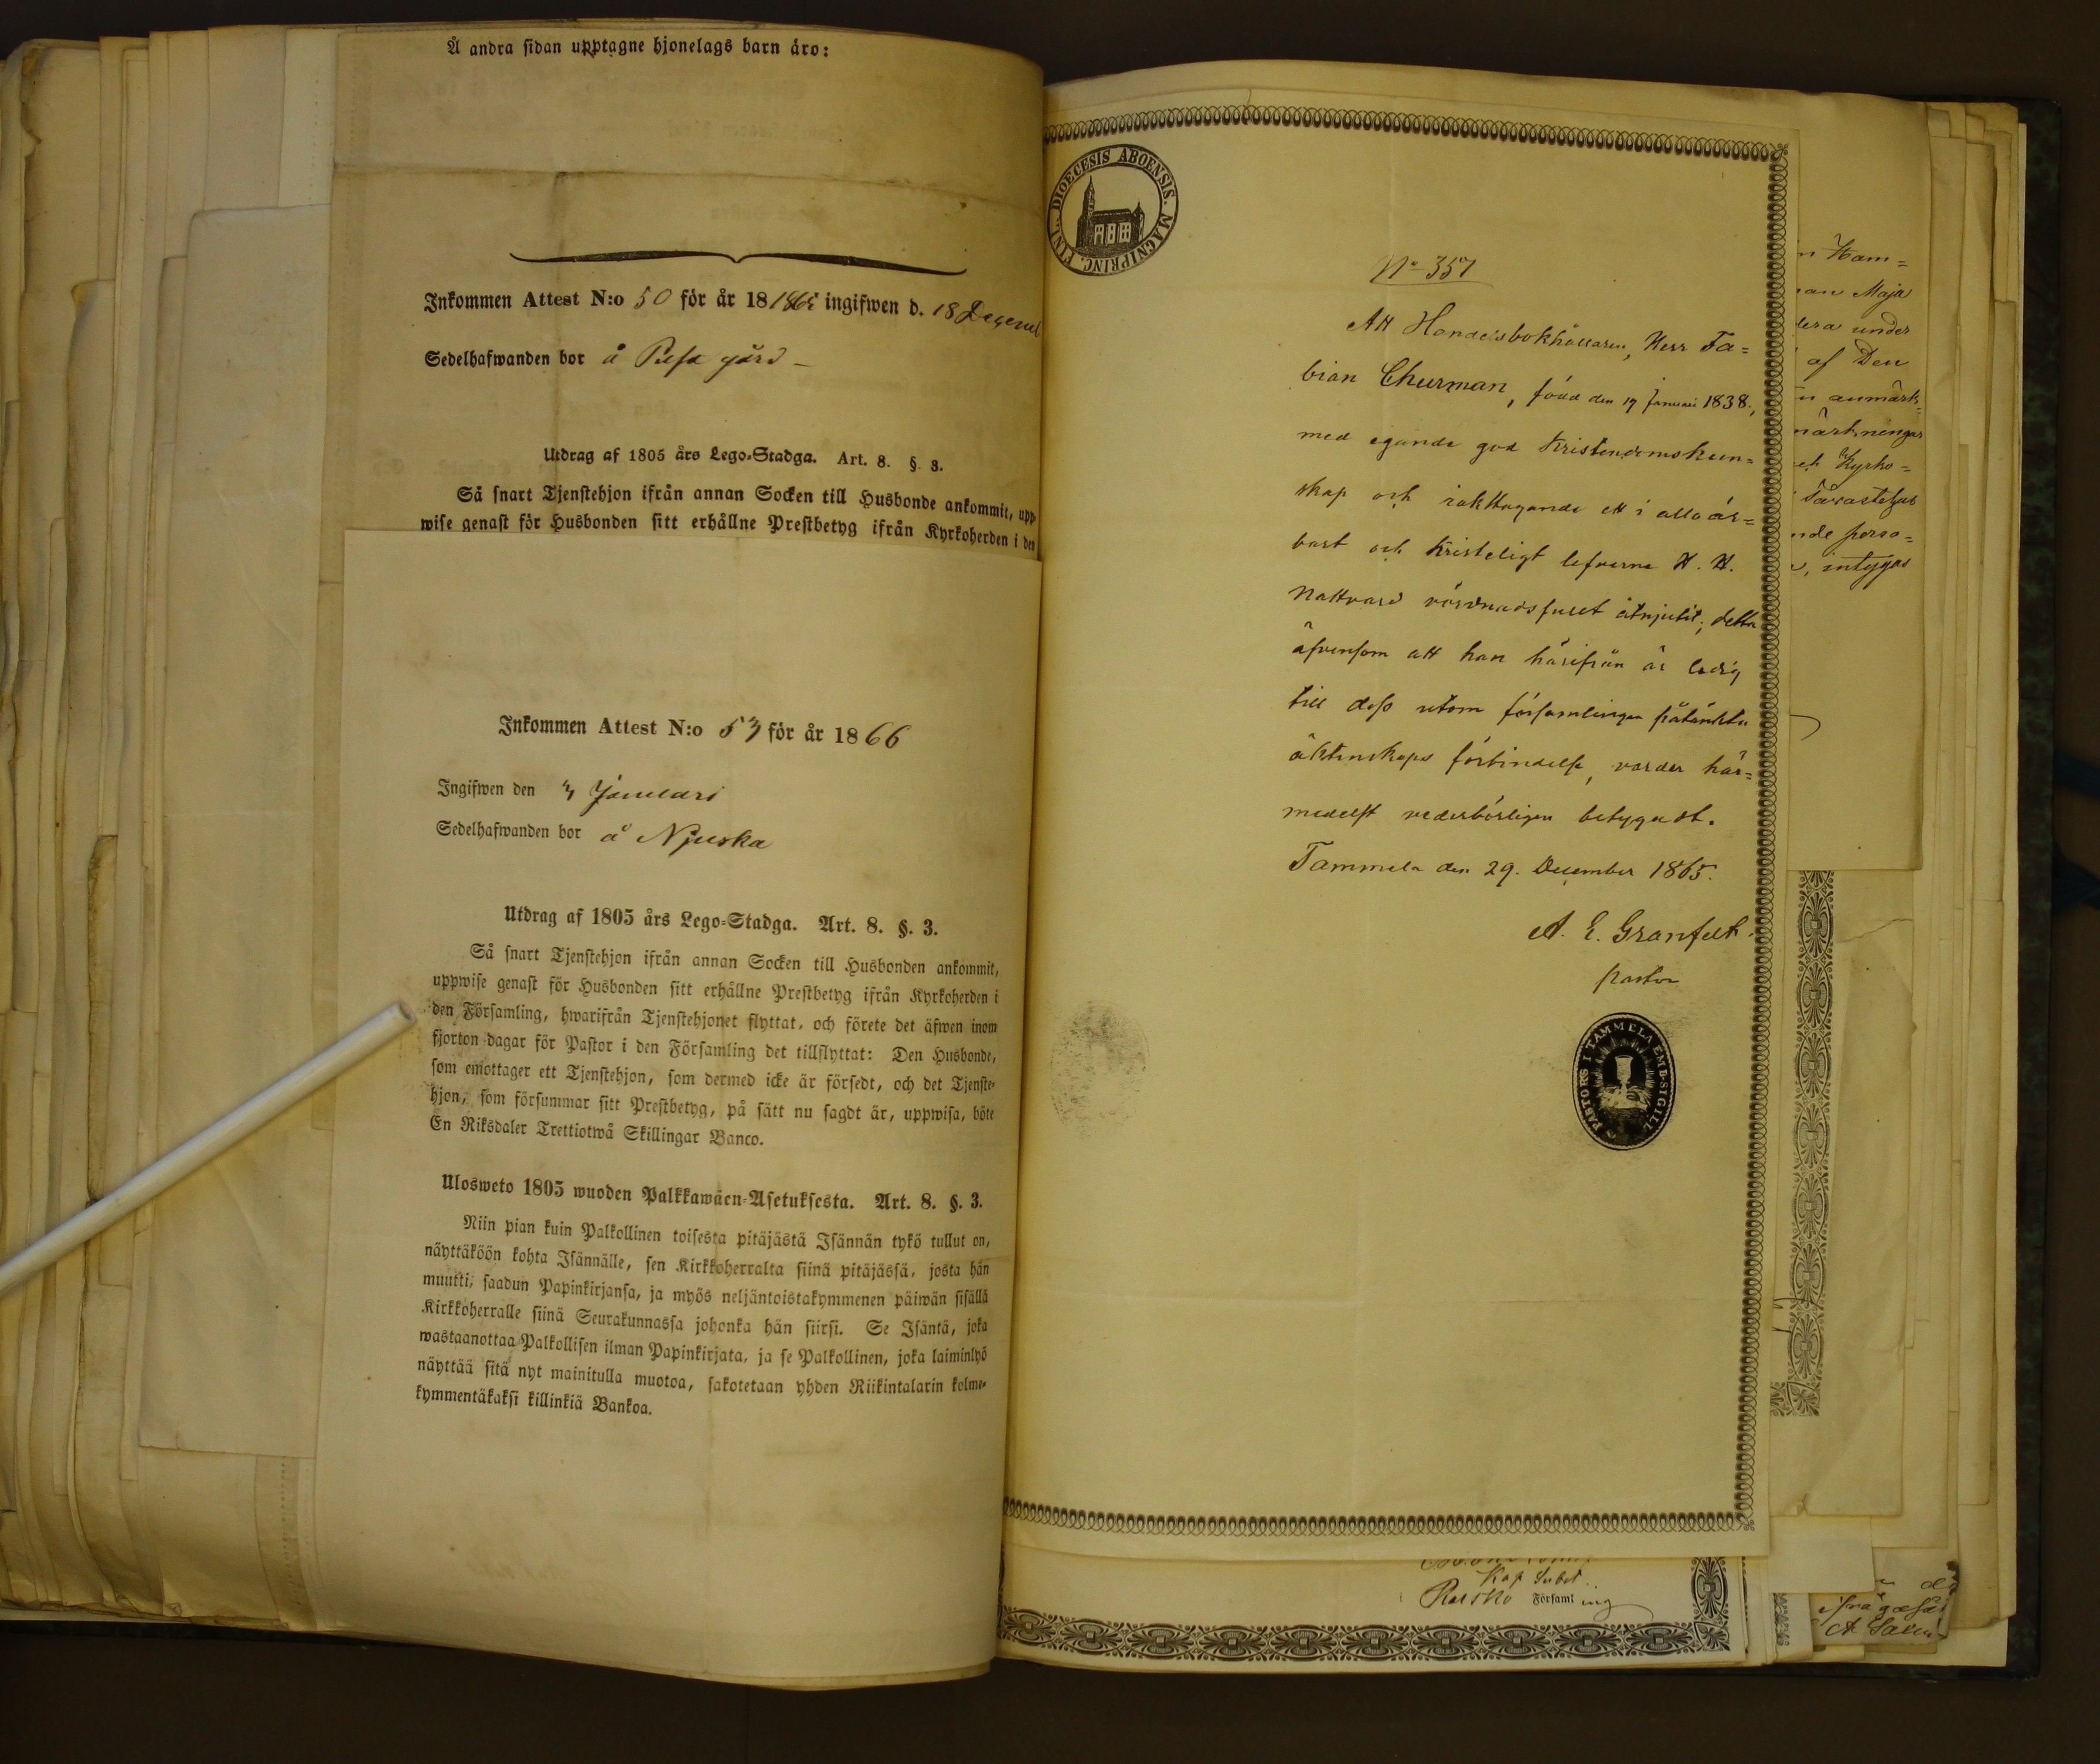 Å andra sidan upptagne hjonelags barn äro:
Inkommen Attest N:o 50 för år 18 1865 ingifwen d. 18 Decemb
Sedelhafwanden bor å gård
Utdrag af 1805 års Lego-Stadga. Art. 8. §. 3.
Så snart Tjenstehjon ifrån annan Socken till Husbonde ankommit, upp-
wise genast för Husbonden sitt erhållne Prestbetyg ifrån Kyrkoherden i den
Inkommen Attest N:o 53 för år 1866
Ingifwen den Januari
Sedelhafwanden bor å Njuska
Utdrag af 1805 års Lego-Stadga. Art. 8. §. 3.
Så snart Tjenstehjon ifrån annan Socken till Husbonden ankommit,
uppwise genast för Husbonden sitt erhållne Prestbetyg ifrån Kyrkoherden i
den Församling, hwarifrån Tjenstehjonet flyttat, och förete det äfwen inom
fjorton dagar för Pastor i den Församling det tillflyttat: Den Husbonde,
som emottager ett Tjenstehjon, som dermed icke är försedt, och det Tjenste-
hjon, som försummar sitt Prestbetyg, på sätt nu sagdt är, uppwisa, böte
En Riksdaler Trettiotwå Skillingar Banco.
Uloswеto 1805 wuoden Palkkawäen-Asetuksesta. Art. 8. §. 3.
Niin pian kuin Palkollinen toisesta pitäjästä Isännän tykö tullut on,
näyttäköön kohta Isännälle, sen Kirkkoherralta siinä pitäjässä, josta hän
muutti, saadun Papinkirjansa, ja myös neljäntoistakymmenen päiwän sisällä
Kirkkoherralle siinä Seurakunnassa johonka hän siirsi. Se Isäntä, joka
wastaanottaa Palkollisen ilman Papinkirjata, ja se Palkollinen, joka laiminlyö
näyttää sitä nyt mainitulla muotoa, sakotetaan yhden Riikintalarin kolme-
kymmentäkaksi killinkiä Bankoa.
DIOECESIS ABOENSIS. MAGNIPRINC. FINL.
No 357
Att Handelsbokhållaren, Herr Fa=
bian Churman, född den 19 Januari 1838.,
med egande god Kristendomskun=
skap och iakttagande ett i allo är=
bart och Kristeligt lefverne H. H.
Nattvard vördnadsfullt åtnjutit; detta
äfvensom att han härifrån är ledig
till dess utom församlingen påtänkta
äktenskaps förbindelse, varder här=
medelst vederbörligen betygadt.
Tammela den 29. December 1865.
A. E. Granfelt.
pastor
PASTORS I TAMMELA EMB. SIGILL
Kam=
Maja
under
af Den
anmärk=
märkningar
Kyrko=
Tavastehus
perso=
intygas
Kap Subst.
Församl ing